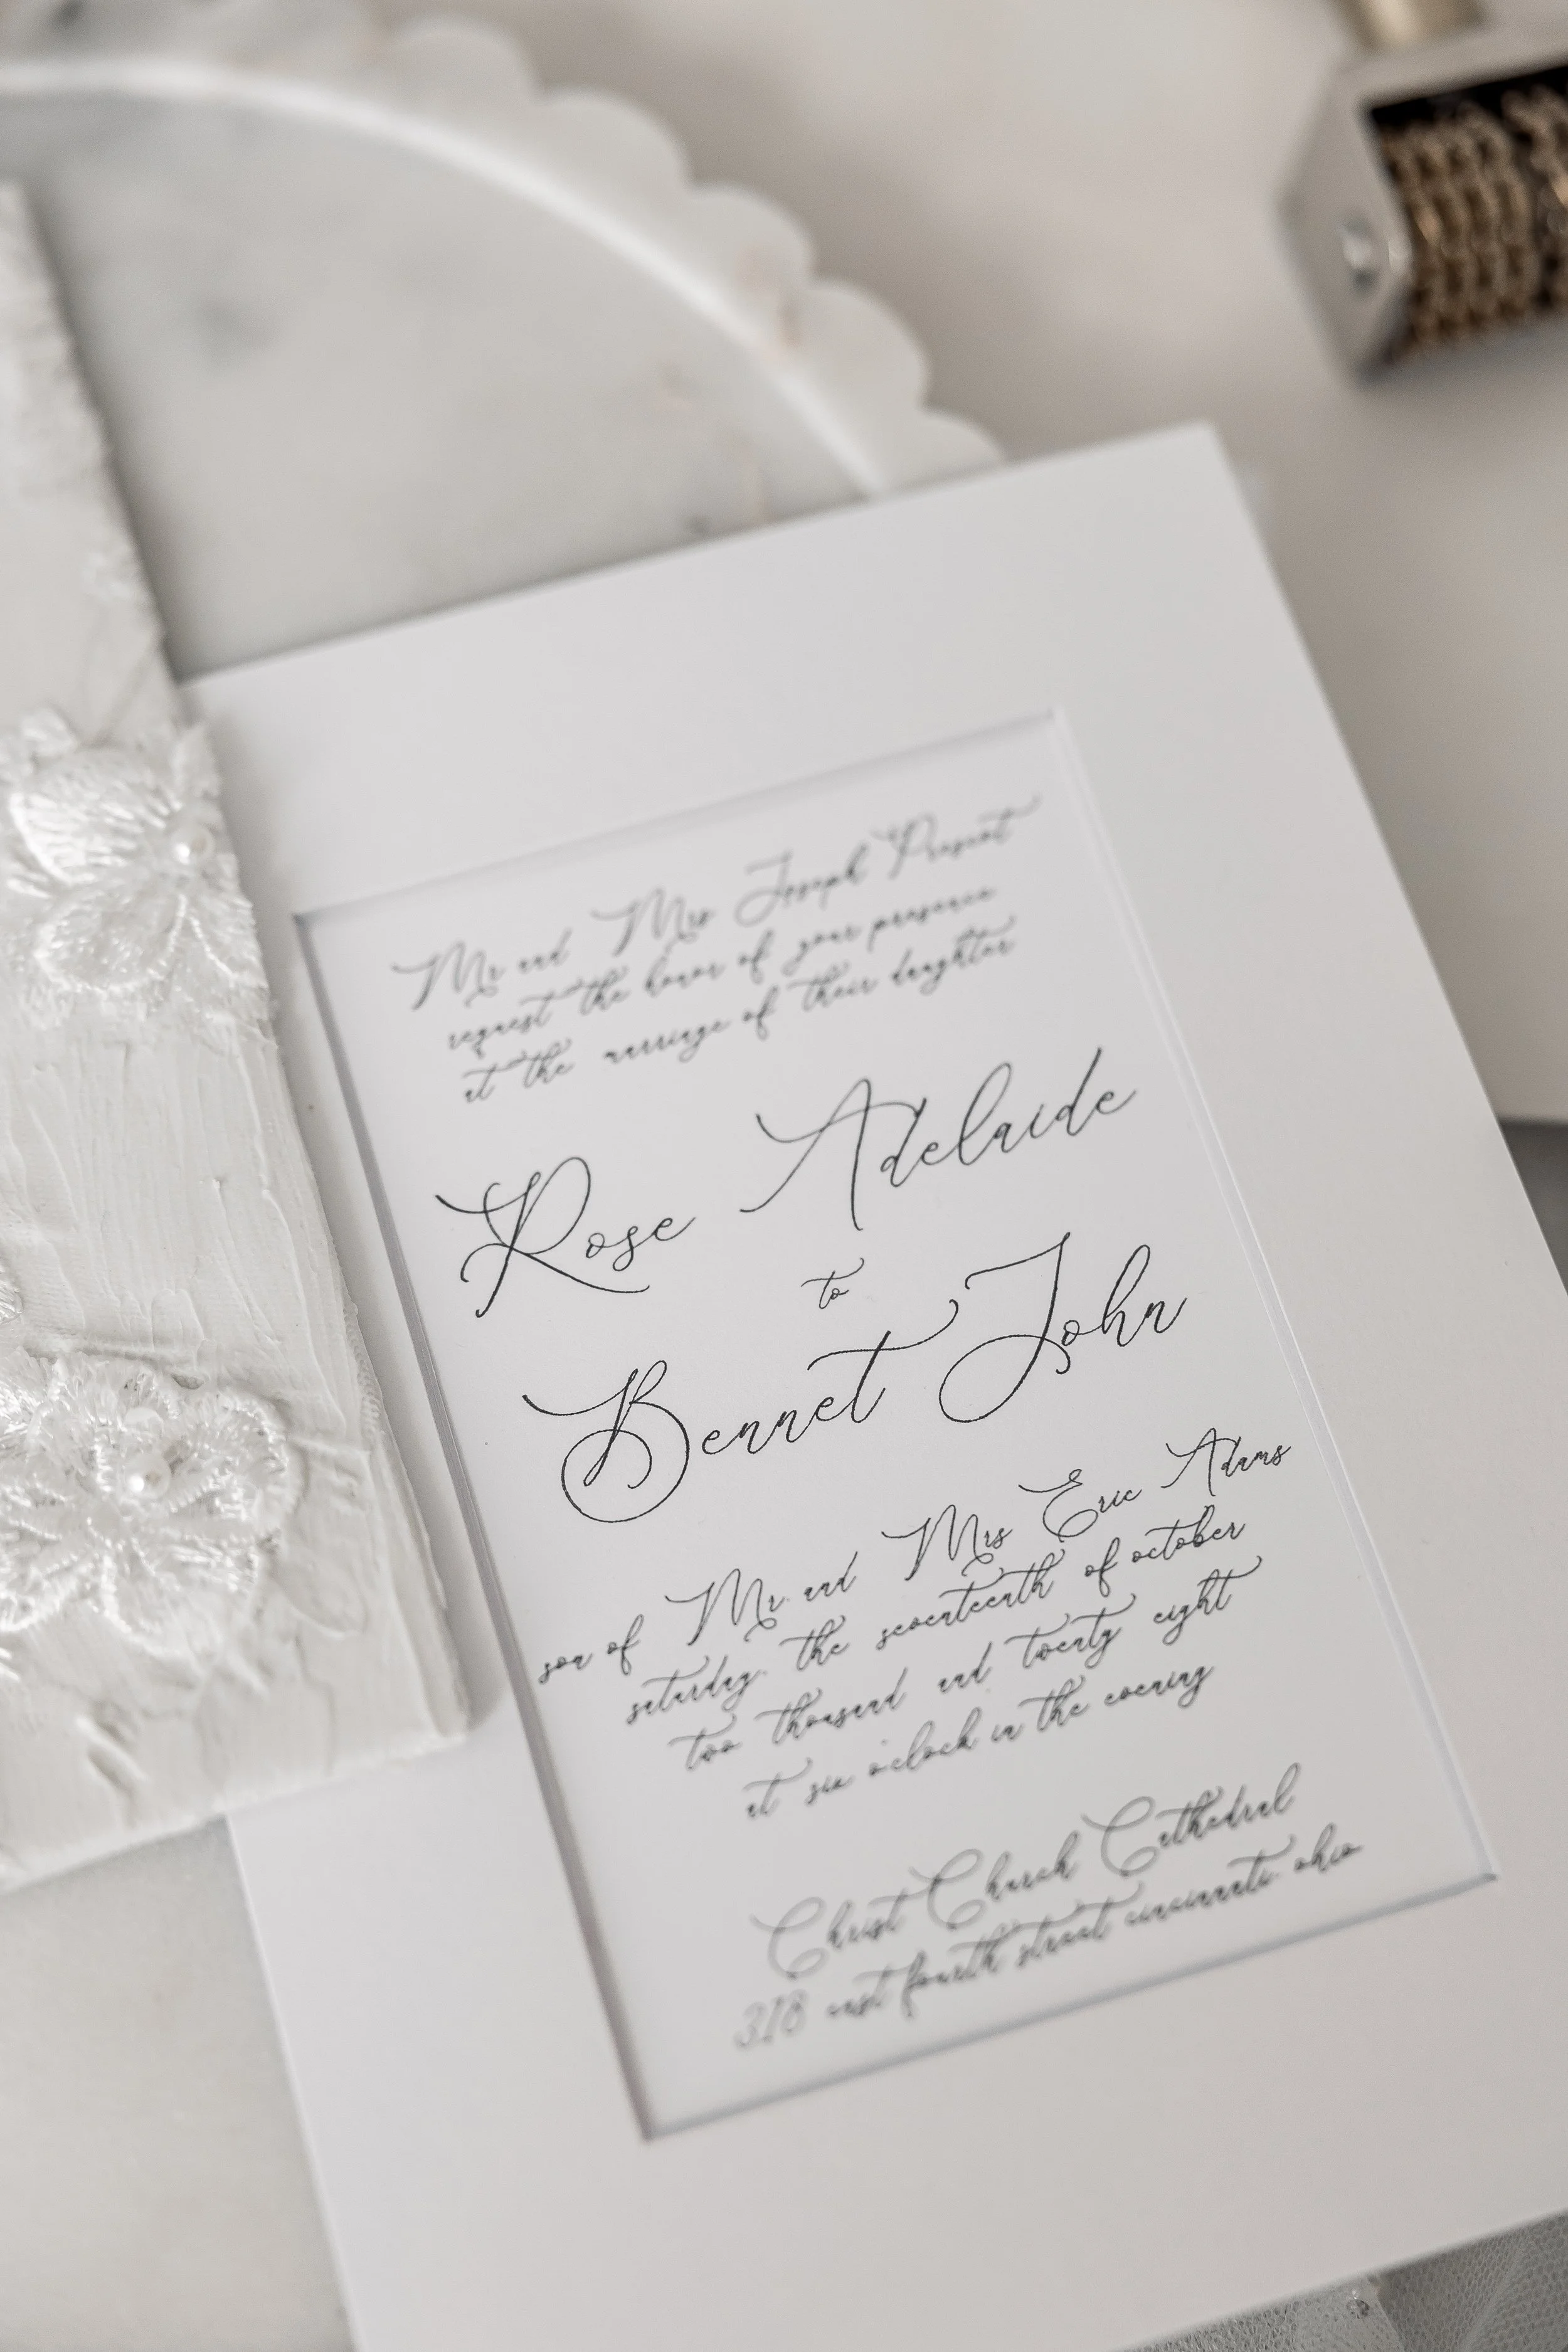 Mr and Mrs Joseph Present
request the honor of your presence
at the marriage of their daughter
Rose Adelaide
to
Bennet John
son of Mr. and Mrs Eric Adams
saturday, the seventeenth of october
two thousand and twenty eight
at six o'clock in the evening
Christ Church Cathedral
318 east fourth street cincinnati, ohio